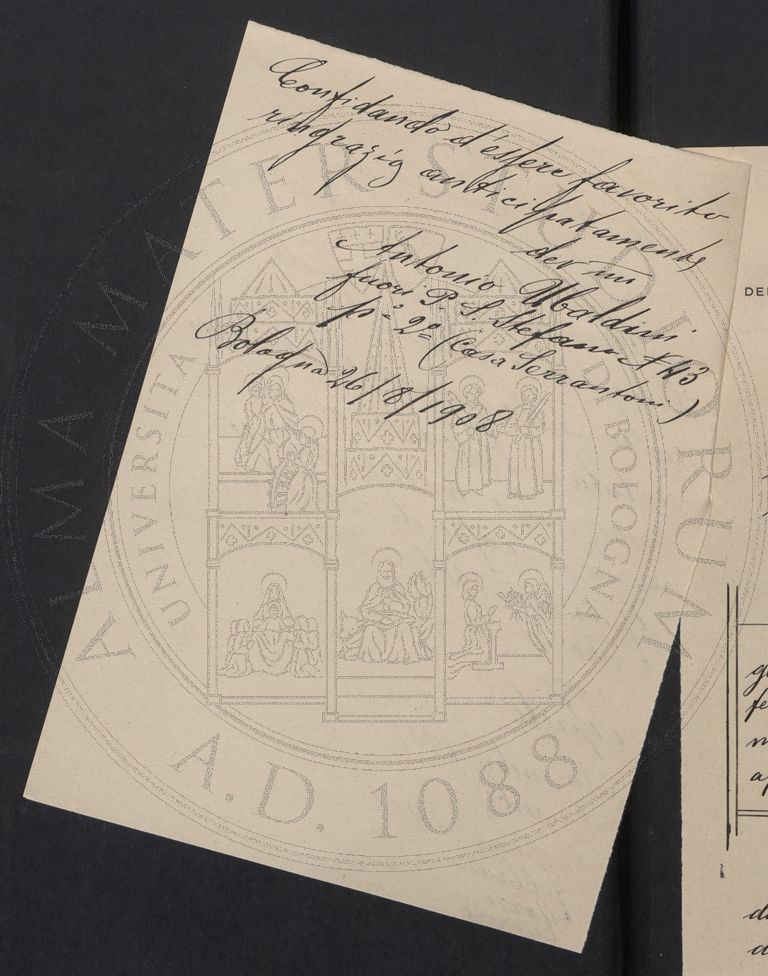 Confidando d'essere favorito
ringrazia anticipatamente
dev. mi
Antonio Ubaldini
fuori P. S. Stefano N. 113
p.º 2º (Casa Serrantoni)
Bologna 26/8/1908
ALMA MATER STUDIORUM
UNIVERSITA
BOLOGNA
A.D. 1088